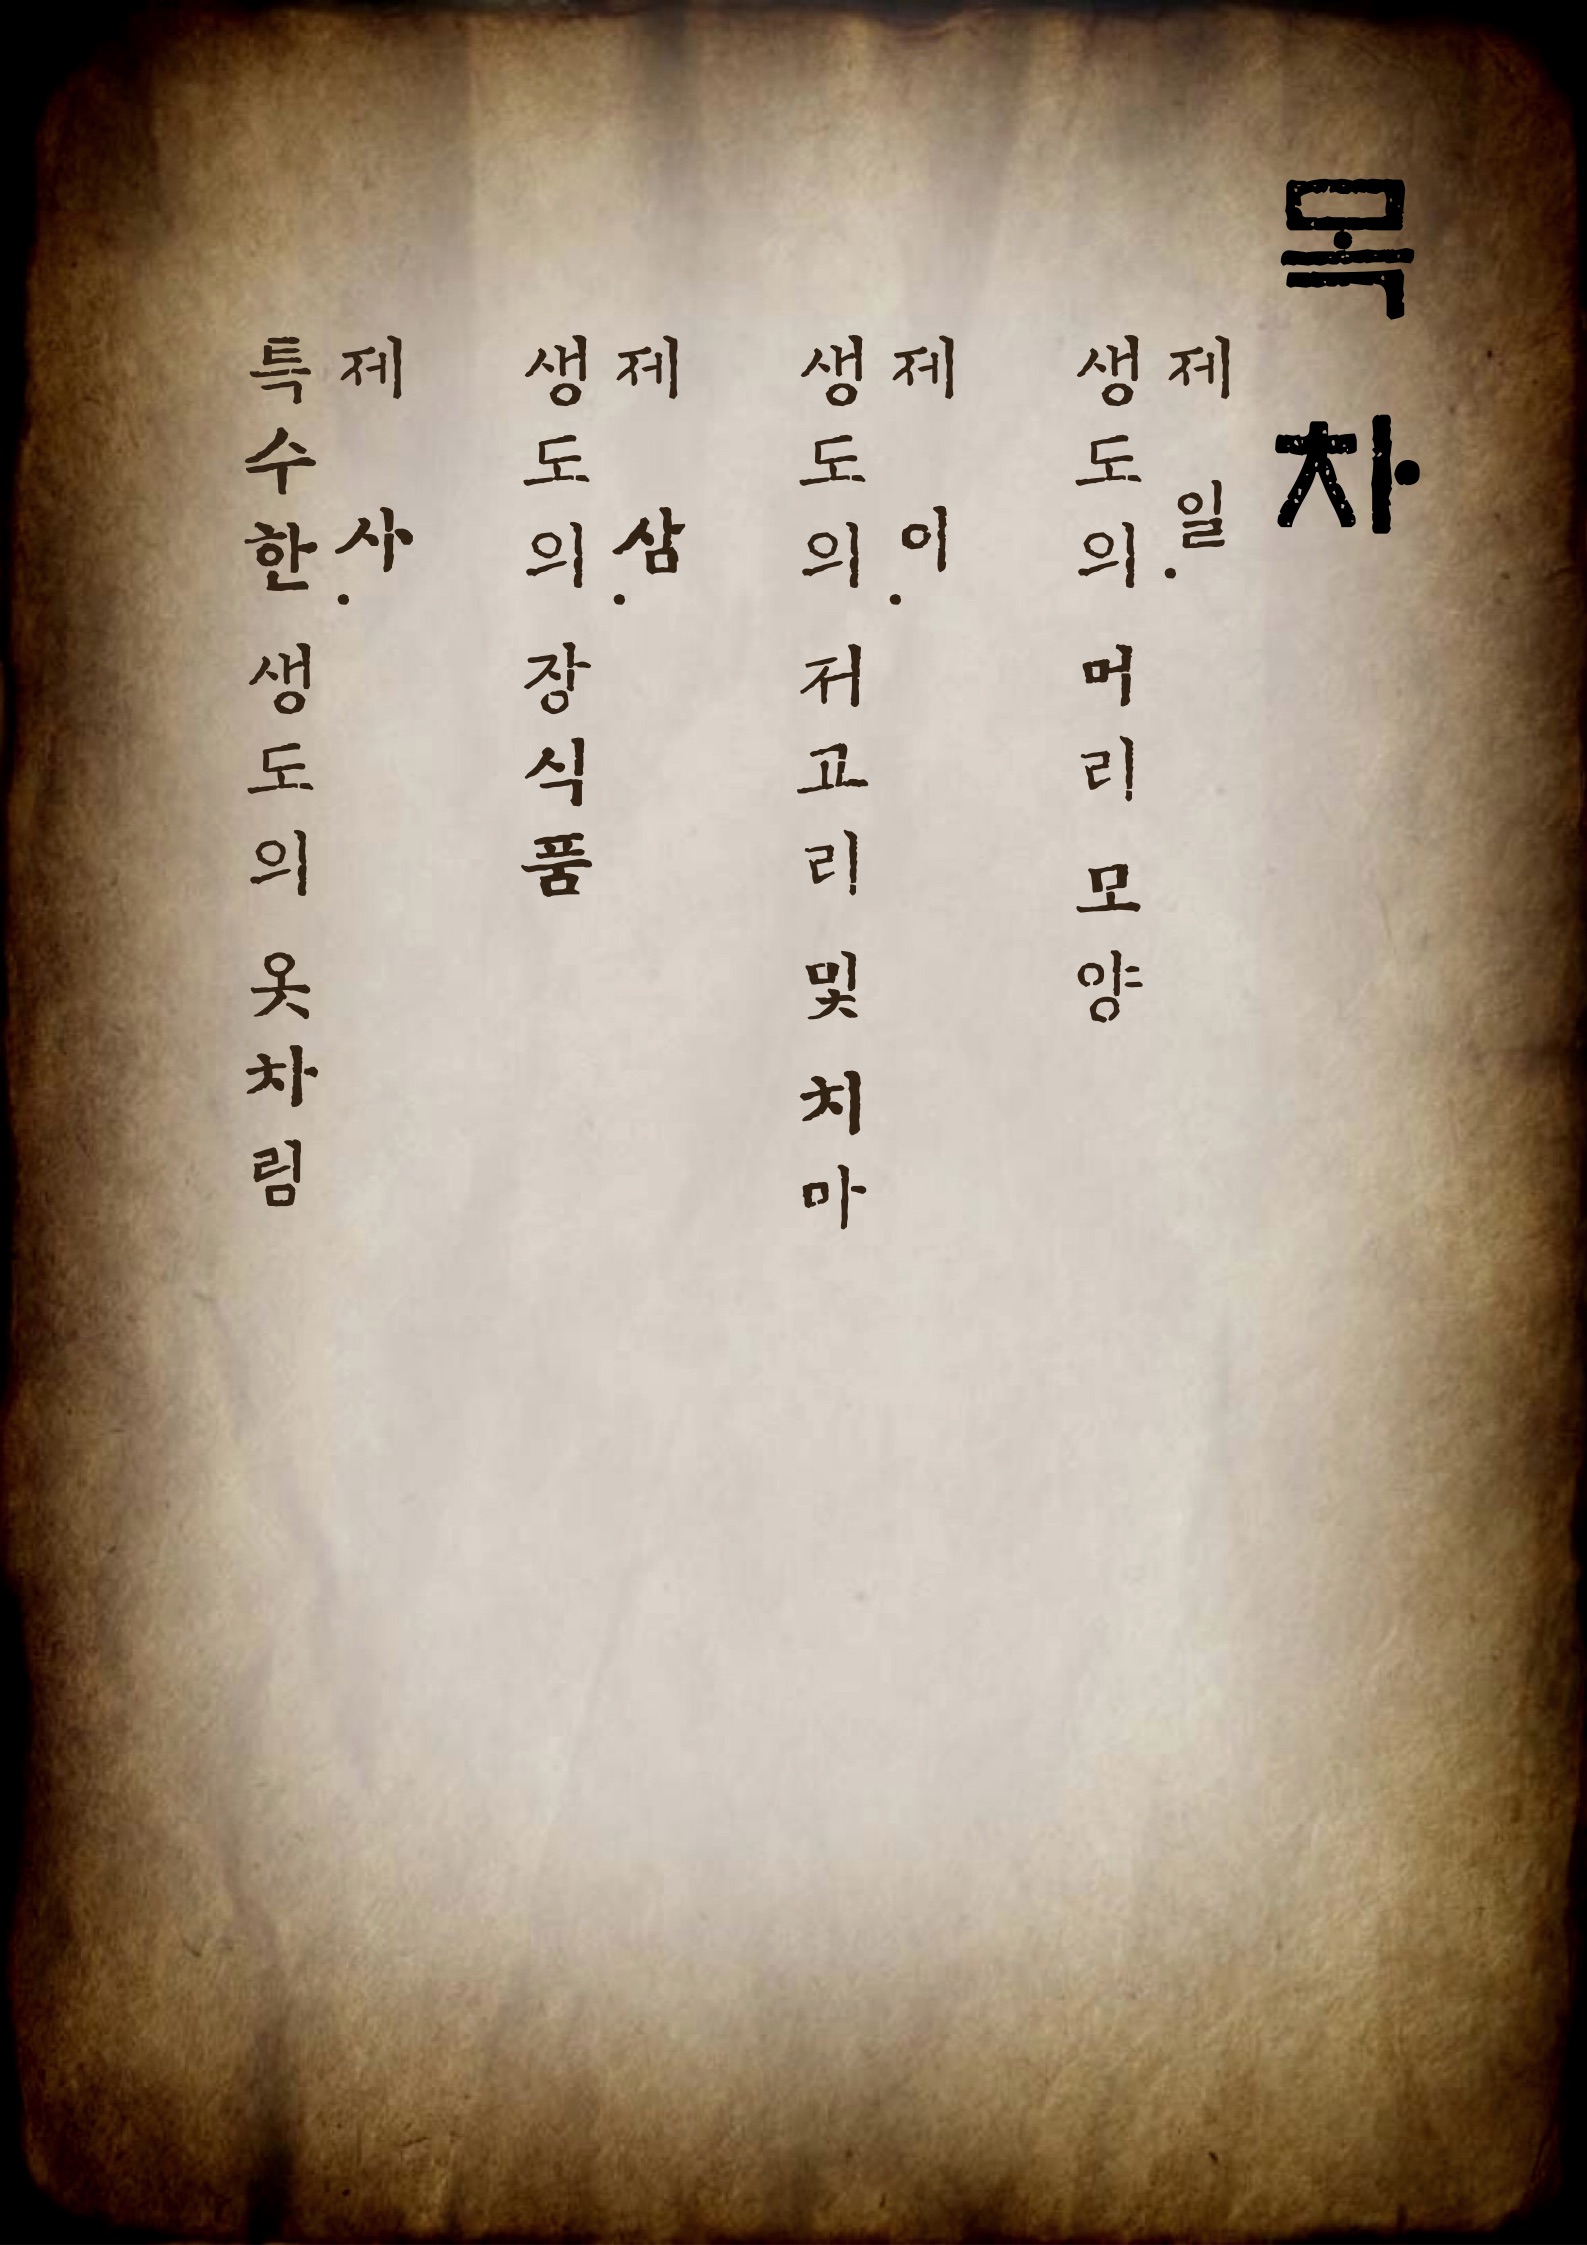 목 차
제 일.
생도의 머리 모양
제 이.
생도의 저고리 및 치마
제 삼.
생도의 장식품
제 사.
특수한 생도의 옷차림